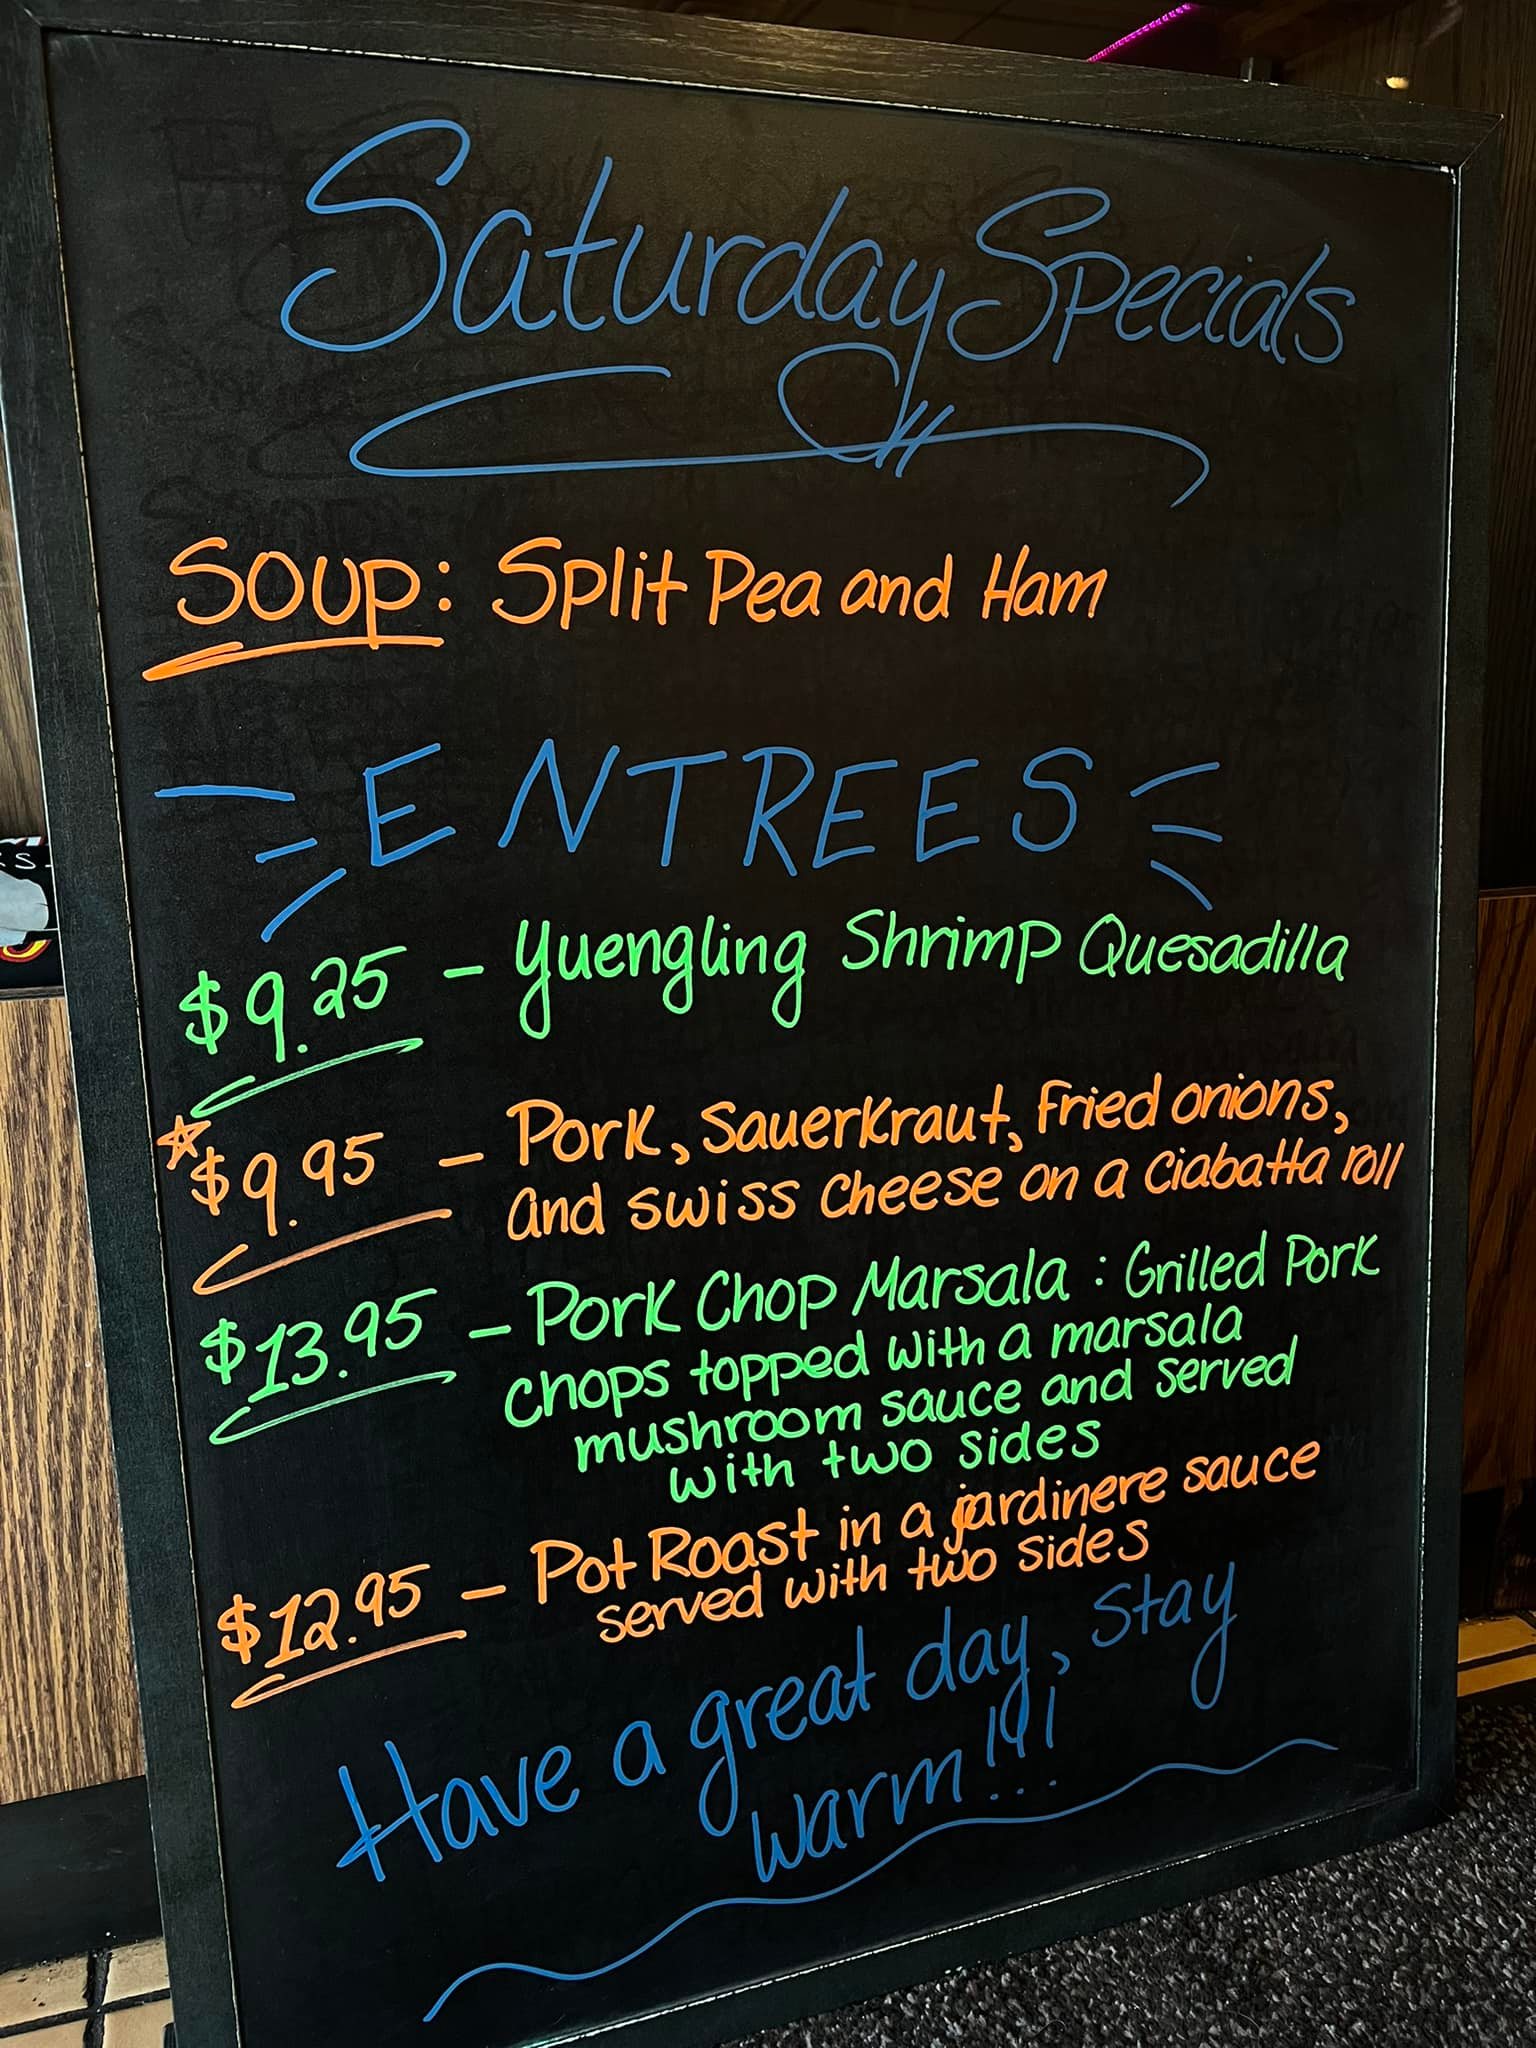 Saturday Specials
Soup: Split Pea and Ham
ENTREES
$9.25 - Yuengling Shrimp Quesadilla
$9.95 - Pork, Sauerkraut, Fried onions,
and swiss cheese on a ciabatta roll
$13.95 - Pork Chop Marsala: Grilled Pork
chops topped with a marsala
mushroom sauce and served
with two sides
$12.95 - Pot Roast in a jardinere sauce
served with two sides
Have a great day, stay
warm!!!